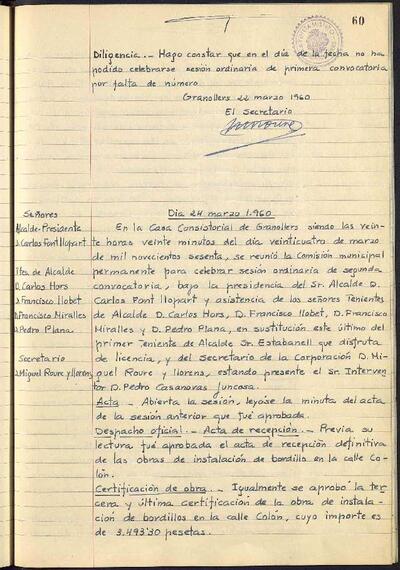 60
Diligencia.- Hago constar que en el día de la fecha no ha
podido celebrarse sesión ordinaria de primera convocatoria
por falta de número.
Granollers 22 marzo 1960
El Secretario
Señores
Alcalde-Presidente
D. Carlos Font Llopart
Ttes. de Alcalde
D. Carlos Hors
D. Francisco Llobet
D. Francisco Miralles
D. Pedro Plana
Secretario
D. Miguel Roure y Llorens
Día 24 marzo 1.960
En la Casa Consistorial de Granollers siendo las vein-
te horas veinte minutos del día veinticuatro de marzo
de mil novecientos sesenta, se reunió la Comisión municipal
permanente para celebrar sesión ordinaria de segunda
convocatoria, bajo la presidencia del Sr. Alcalde D.
Carlos Font Llopart y asistencia de los señores Tenientes
de Alcalde D. Carlos Hors, D. Francisco Llobet, D. Francisco
Miralles y D. Pedro Plana, en sustitución este último del
primer Teniente de Alcalde Sr. Estabanell que disfruta
de licencia, y del Secretario de la Corporación D. Mi-
guel Roure y Llorens, estando presente el Sr. Interven-
tor D. Pedro Casanovas Juncosa.
Acta.- Abierta la sesión, leyóse la minuta del acta
de la sesión anterior que fué aprobada.
Despacho oficial.- Acta de recepción.- Previa su
lectura fué aprobada el acta de recepción definitiva
de las obras de instalación de bordillo en la calle Co-
lón.
Certificación de obra.- Igualmente se aprobó la ter-
cera y última certificación de la obra de instala-
ción de bordillos en la calle Colón, cuyo importe es
de 3.493'30 pesetas.